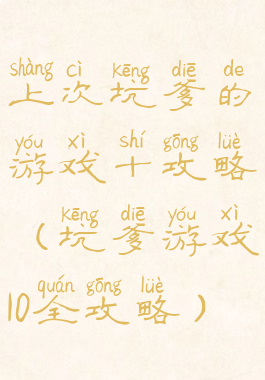 shàng cì kēng diē de
上次坑爹的
yóu xì shí gōng lüè
游戏十攻略
kēng diē yóu xì
（坑爹游戏
quán gōng lüè
10全攻略）